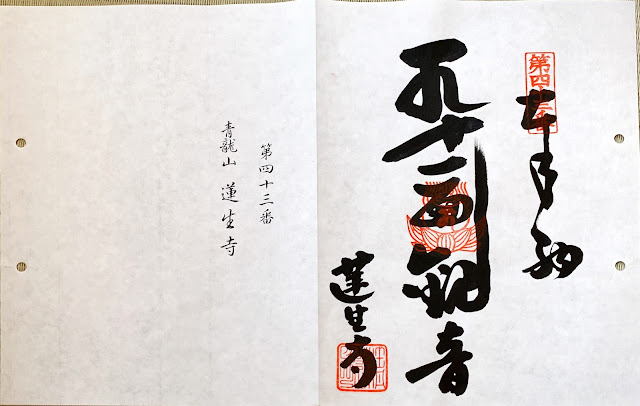 第四十三番
奉納
十一面観音
蓮生寺
第四十三番
青龍山 蓮生寺